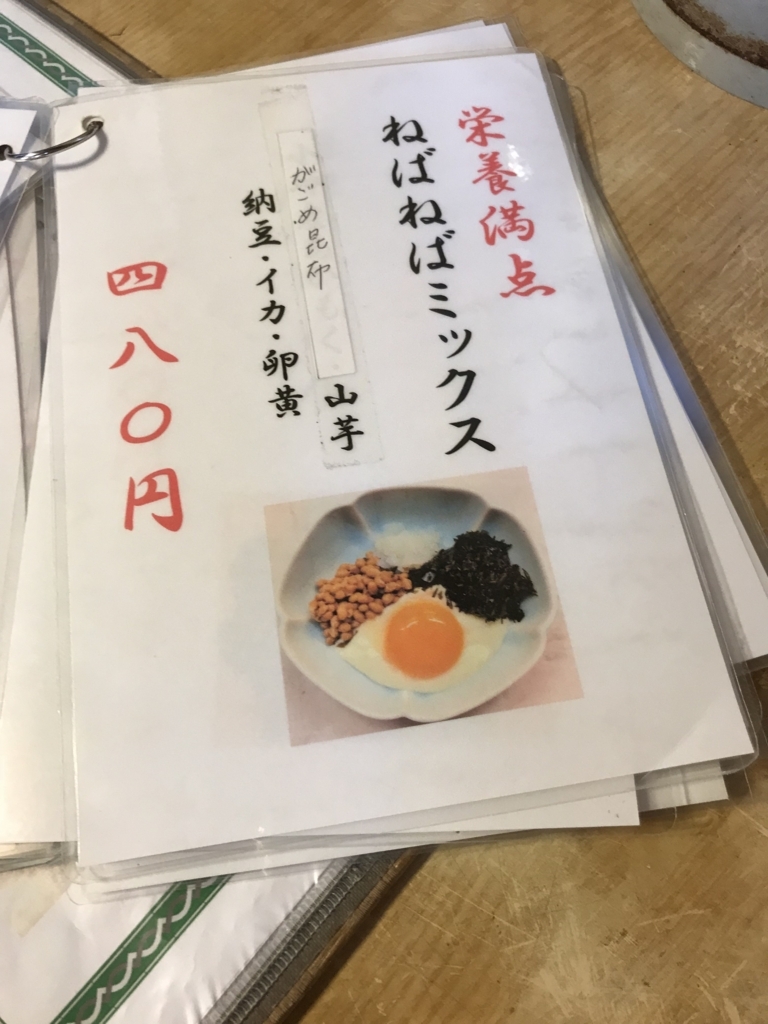 栄養満点
ねばねばミックス
がごめ昆布 山芋
納豆・イカ・卵黄
四八〇円